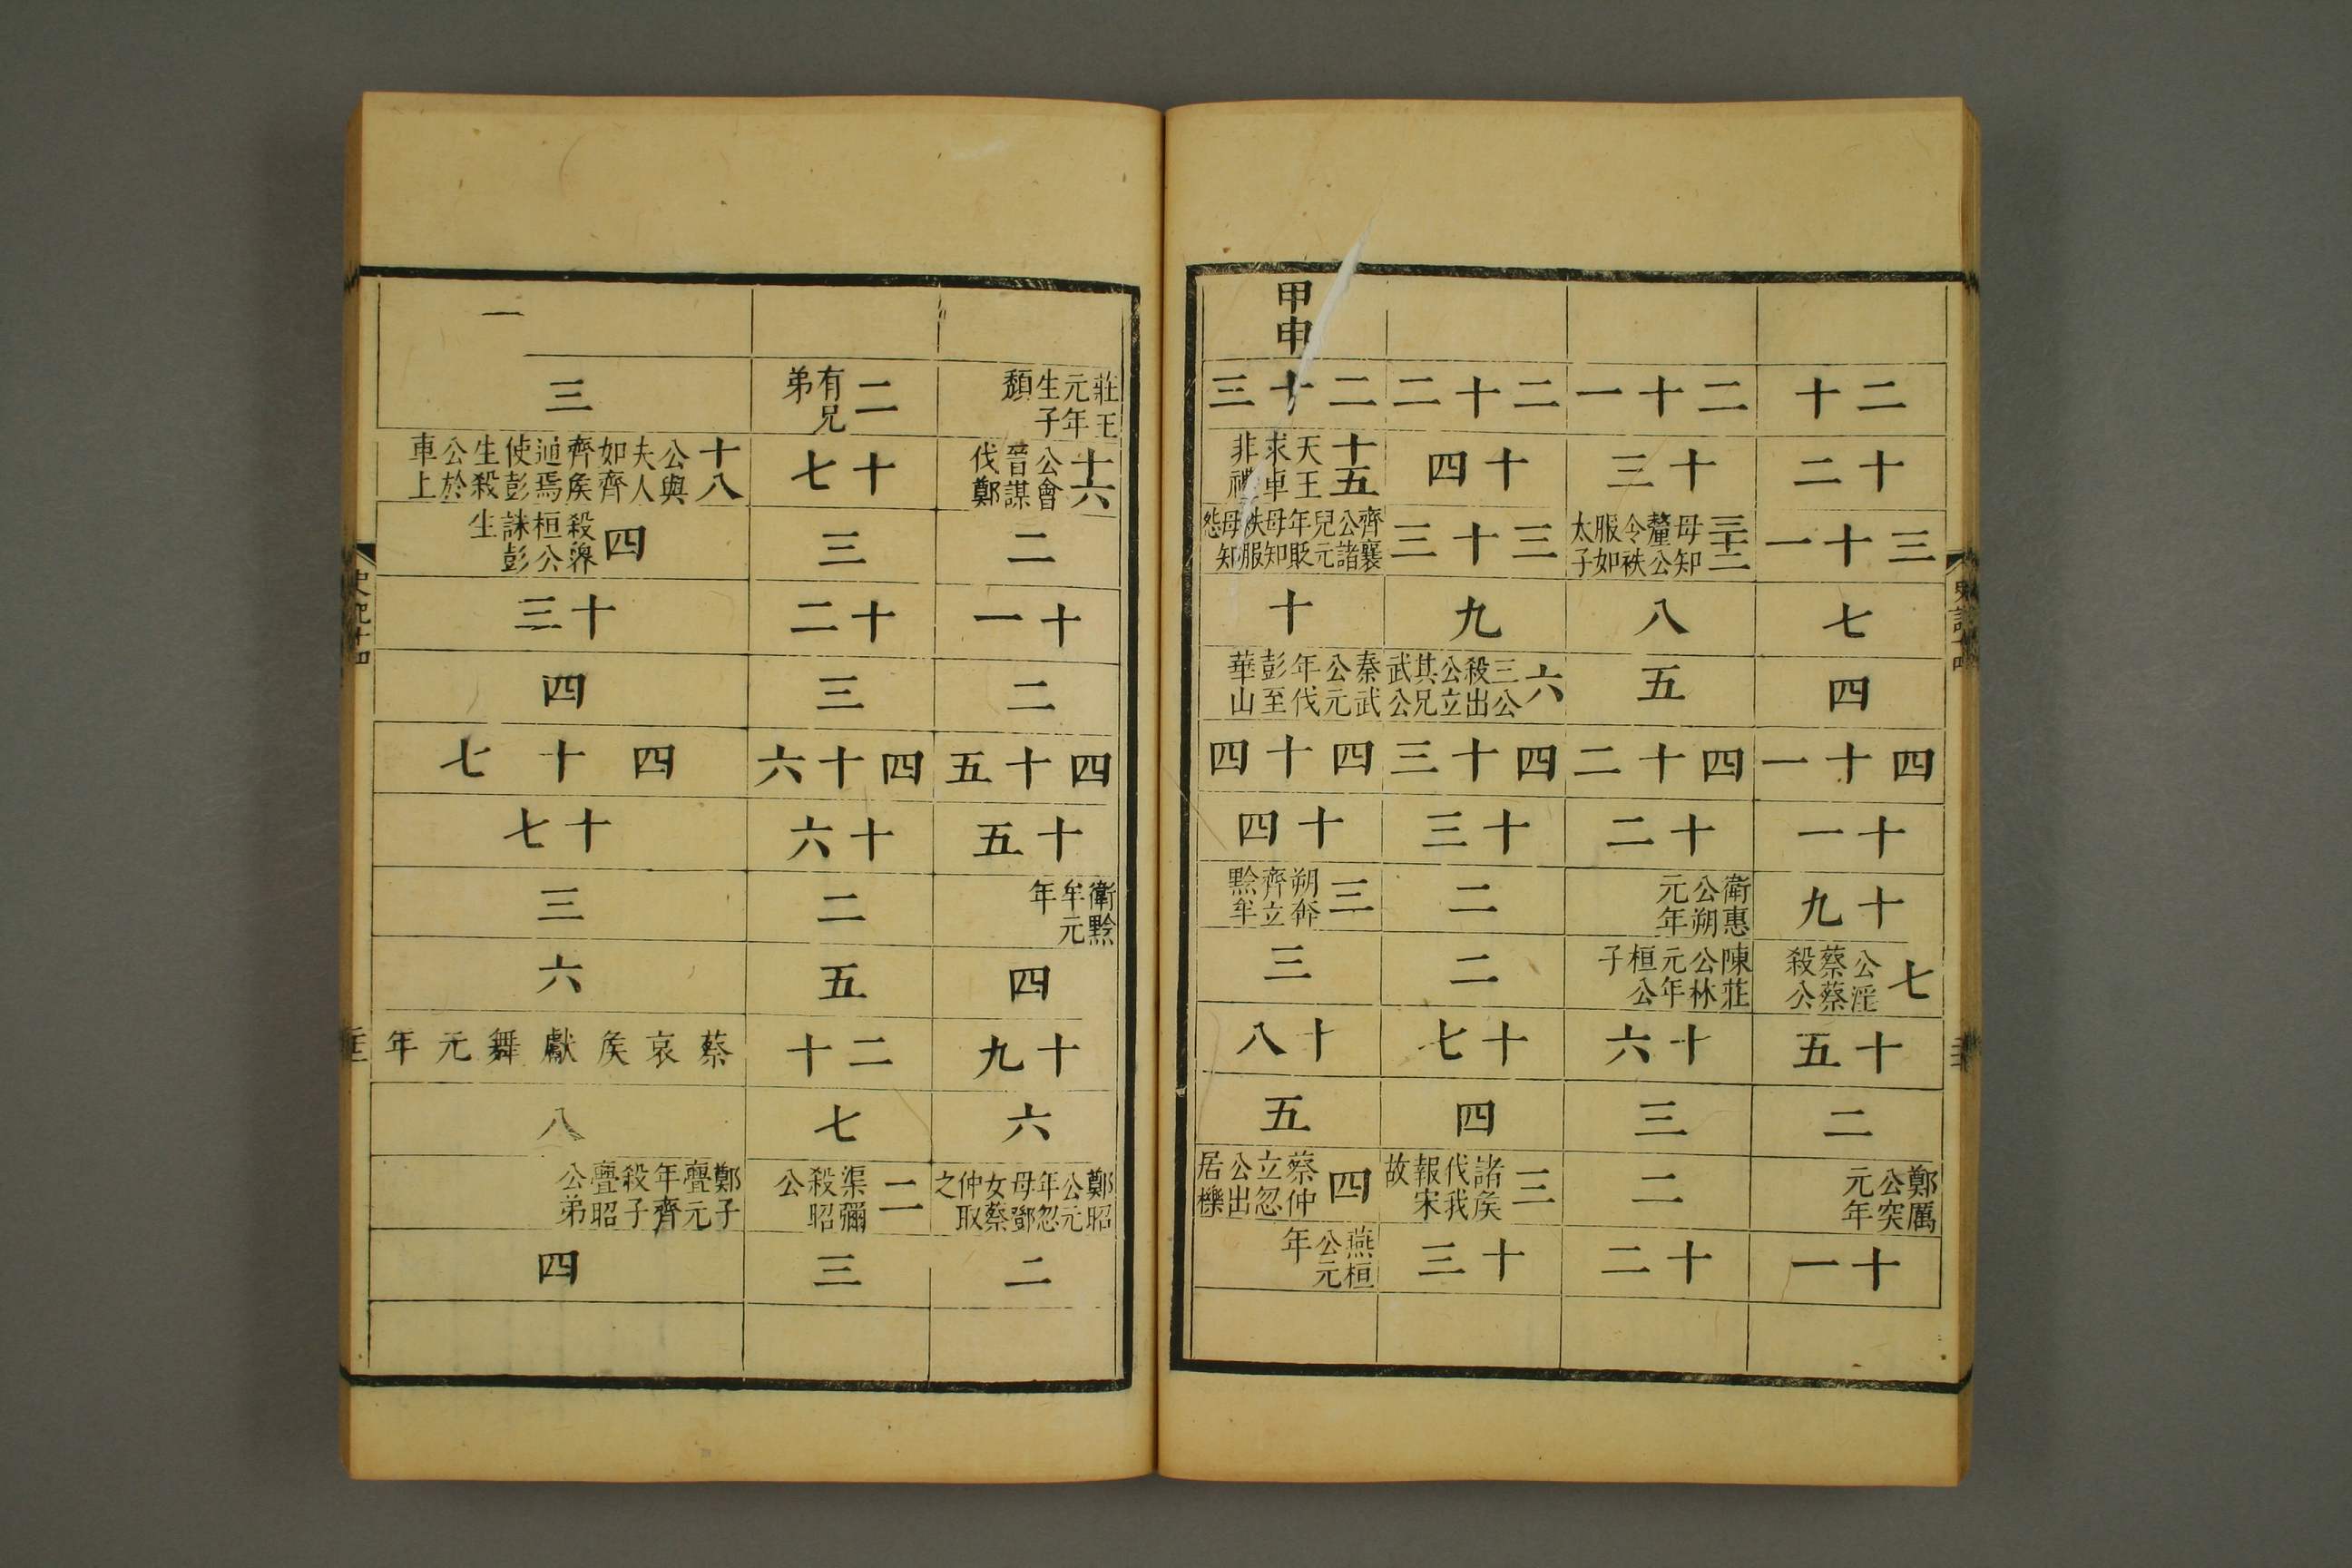 二十
十二
三十一
七
四
四十一
十一
十九
七 公淫蔡蔡殺公
十五
二
鄭厲公突元年
十一
二十一
十三
三十二 母知釐公令袟服如太子
八
五
四十二
十二
衛惠公朔元年
陳莊公林元年桓公子
十六
三
二
十二
二十二
十四
三十三
九
六 三公殺出公立其兄武公
四十三
十三
二
二
十七
四
三 諸矦伐我報宋故
十三
甲申
二十三
十五 天王求車非禮
齊襄公諸兒元年貶母知袟服母知怨
十
秦武公元年伐彭至華山
四十四
十四
三 朔奔齊立黔牟
三
十八
五
四 蔡仲立忽公出居櫟
燕桓公元年
史記十四
莊王元年生子頽
十六 公會晉謀伐鄭
二
十一
二
四十五
十五
衛黔牟元年
四
十九
六
鄭昭公元年忽母鄧女蔡仲取之
二
二 有兄弟
十七
三
十二
三
四十六
十六
二
五
二十
七
二 渠彌殺昭公
三
三
十八 公與夫人如齊齊矦通焉使彭生殺公於車上
四 殺魯桓公誅彭生
十三
四
四十七
十七
三
六
蔡哀矦獻舞元年
八
鄭子亹元年齊殺子亹昭公弟
四
史記十四